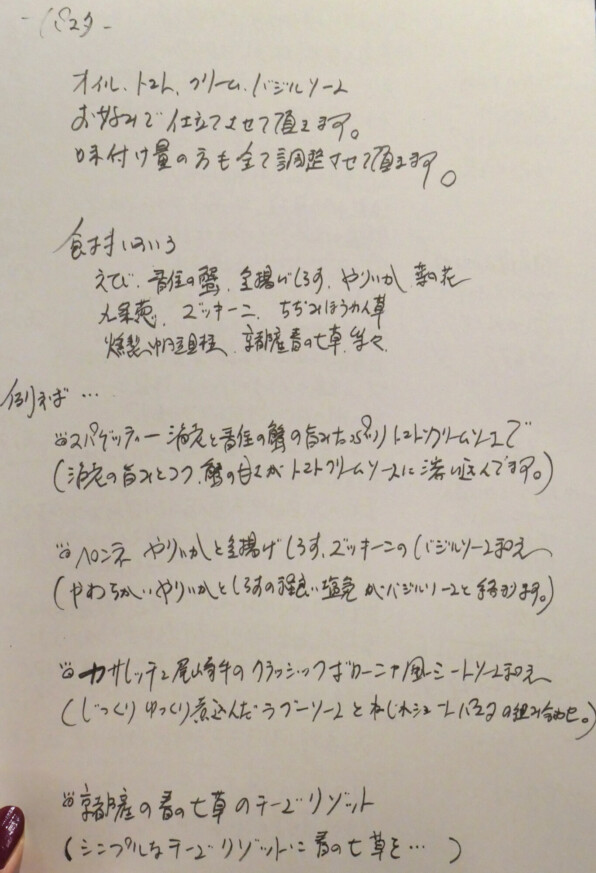 -パスタ-
オイル、トマト、クリーム、バジルソース
お好みで仕立てさせて頂きます。
味付け量の方も全て調整させて頂きます。
食材いろいろ
えび、香住の蟹、釜揚げしらす、やりいか、菜の花
九条葱、ズッキーニ、ちぢみほうれん草
燻製、京都産春の七草、等々
例えば…
スパゲッティー 海老と香住の蟹の旨みたっぷりトマトクリームソースで
(海老の旨みとコク、蟹の甘さがトマトクリームソースに溶け込んでます。)
ペンネ やりいかと釜揚げしらす、ズッキーニのバジルソース和え
(やわらかいやりいかとしらすの程良い塩気がバジルソースと絡みます。)
カサレッチェ 尾崎牛のクラシックボローニャ風ミートソース和え
(じっくりゆっくり煮込んだラグーソースとねじれショートパスタの組み合わせ。)
京都産の春の七草のチーズリゾット
(シンプルなチーズリゾットに春の七草を…)